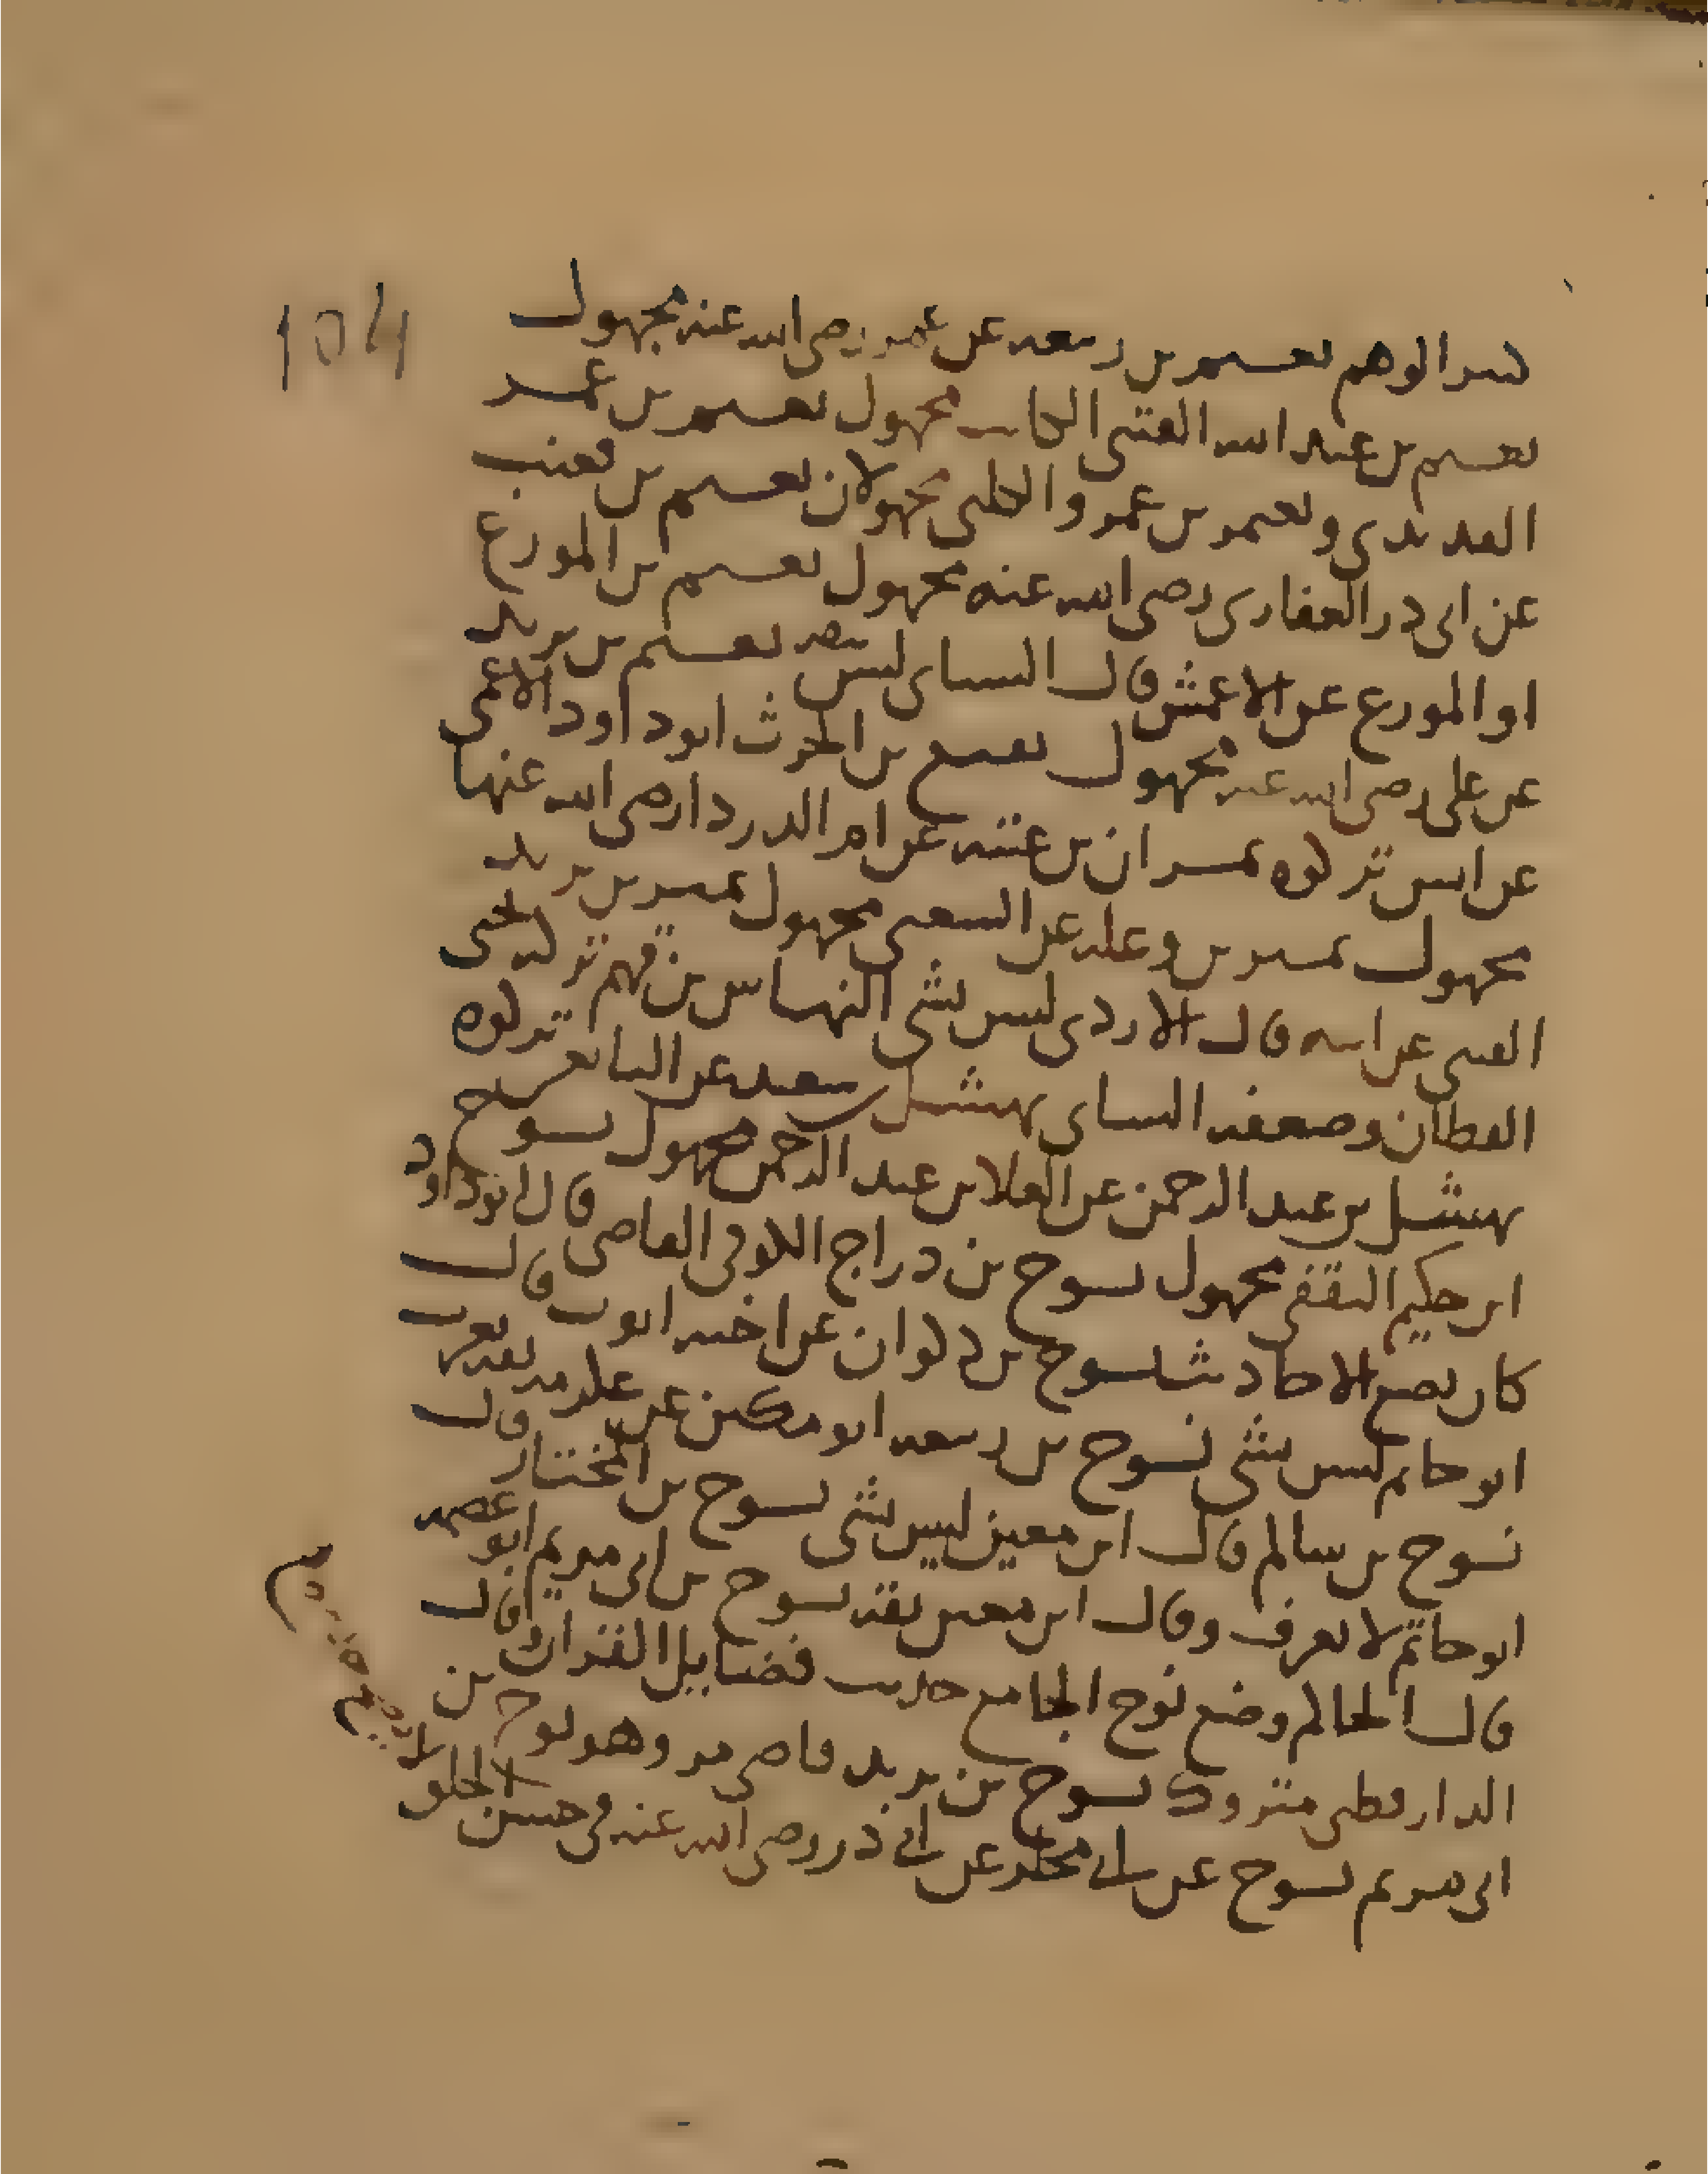 104
كثير الوهم نعيم بن ربيعه عن عمر رضى الله عنه مجهول
نعيم بن عبد الله القتبى الكاتب مجهول نعيم بن عمر
القديدى ونعيم بن عمرو الكلبى مجهولان نعيم بن قعنب
عن ابى در الغفارى رضى الله عنه مجهول نعيم بن المورع
او المورع عن الاعمش قال النساى ليس بثقه نعيم بن يزيد
عن على رضى الله عنه مجهول نفيع بن الحرث ابو داود الاعمى
عن انس تركوه نمران بن عتبه عن ام الدرداء رضى الله عنها
مجهول نمير بن وعله عن الشعبى مجهول نمير بن يزيد
القينى عن ابيه قال الازدى ليس بشى النهاس بن قهم تركه يحيى
القطان وضعفه النساى نهشل بن سعيد عن التابعين تركوه
نهشل بن عبد الرحمن عن العلا بن عبد الرحمن مجهول نوح
ابن حكيم الثقفى مجهول نوح بن دراج الكوفى القاضى قال ابو داود
كان يضع الاحاديث نوح بن ذكوان عن اخيه ايوب قال
ابو حاتم ليس بشى نوح بن ربيعه ابو مكين عن عكرمه يعرب
نوح بن سالم قال ابن معين ليس بشى نوح بن المختار قال
ابو حاتم لا يعرف وقال ابن معين ثقه نوح بن ابى مريم ابو عصمه
قال الحاكم وضع نوح الجامع حديث فضايل القران وقال
الدارقطنى متروك نوح بن يزيد قاضى مرو وهو نوح بن
ابى مريم نوح عن ابى مجلز عن ابى ذر رضى الله عنه فى حسن الخلق
لا يصح